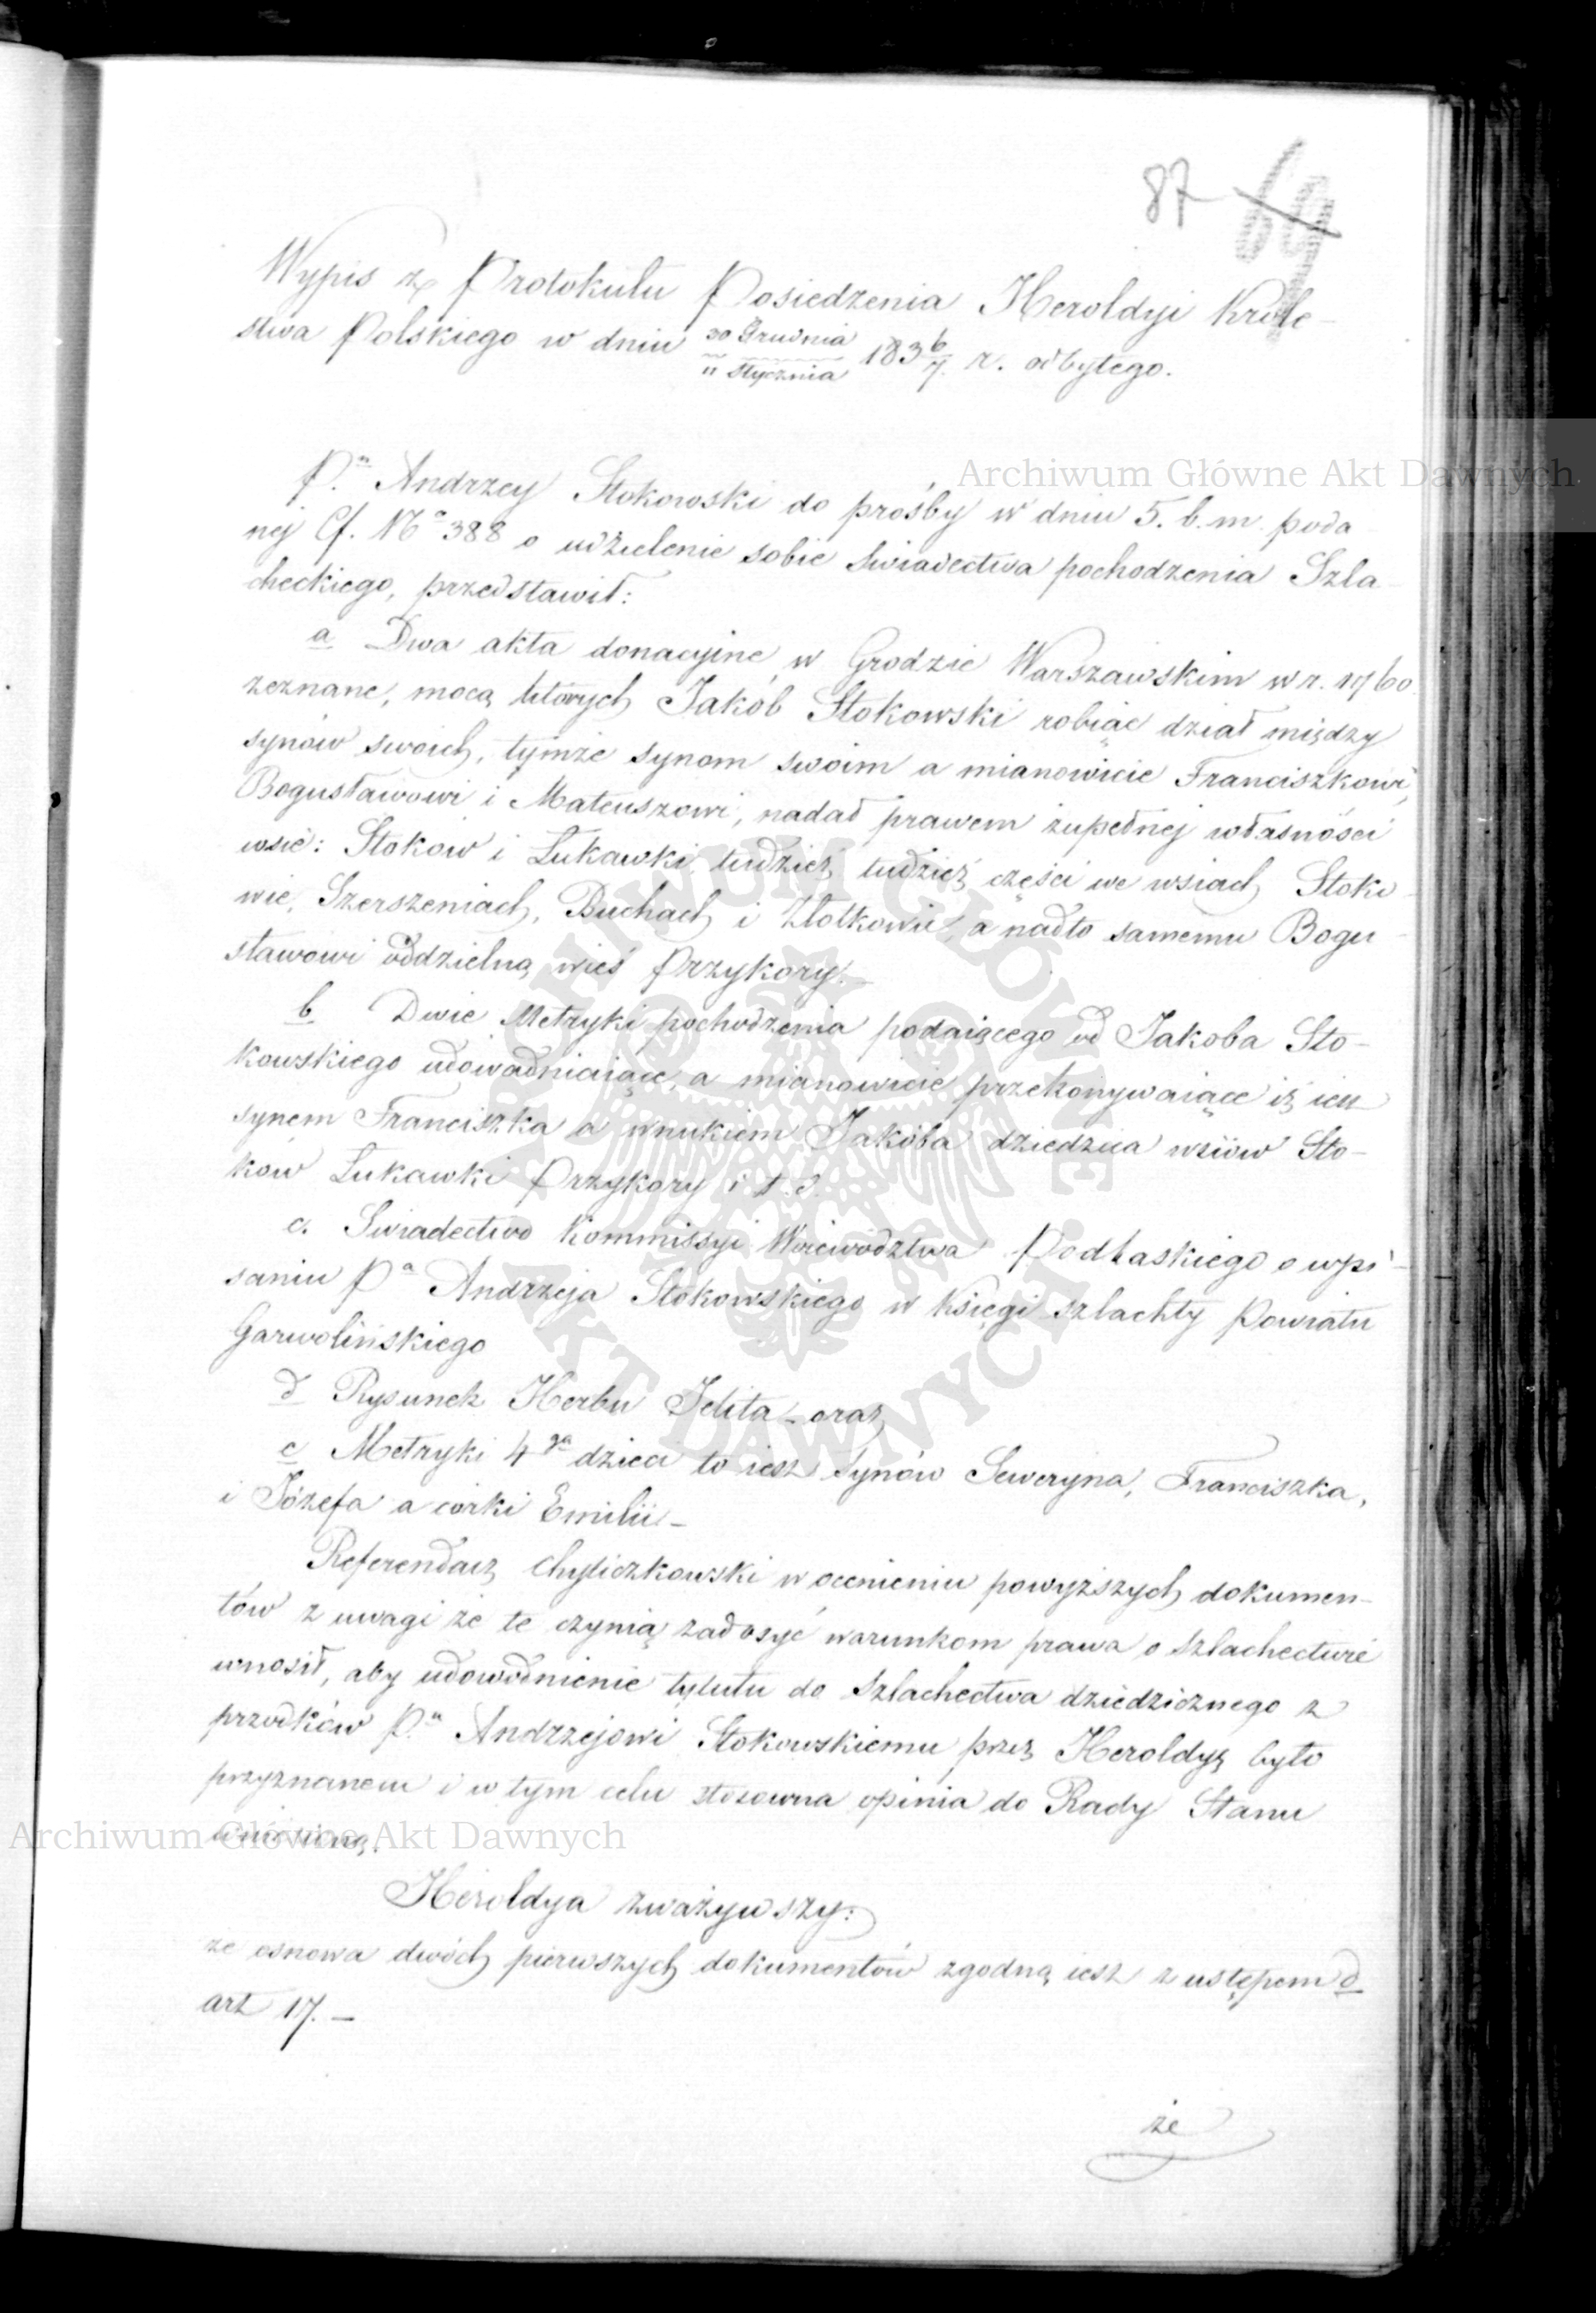 87
Wypis z Protokułu Posiedzenia Heroldyi Króle-
stwa Polskiego w dniu 30 Grudnia / 11 Stycznia 183 6/7 r. odbytego.
Archiwum Główne Akt Dawnych
P.n Andrzey Stokowski do prośby w dniu 5. b. m. poda
nej Cf. No 388 o udzielenie sobie świadectwa pochodzenia Szla-
checkiego, przedstawił:
a Dwa akta donacyjne w Grodzie Warszawskim w r. 1760.
zeznane, mocą których Jakób Stokowski robiąc dział między
synów swoich, tymże synom swoim a mianowicie Franciszkowi,
Bogusławowi i Mateuszowi, nadał prawem zupełnej własności
wsie: Stokow i Łukawki, tudzież tudzież części we wsiach Stoko
wie, Szerszeniach, Buchach i Złotkowie, a nadto samemu Bogu-
sławowi oddzielną wieś Przykory.—
b Dwie Metryki pochodzenia podaiącego od Jakoba Sto-
kowskiego udowadniaiące, a mianowicie przekonywaiące iż iest
synem Franciszka a wnukiem Jakóba dziedzica wsiów Sto-
ków Łukawki Przykory i t. d.
c. Swiadectwo Kommissyi Woiewództwa Podlaskiego o wpi-
saniu P.a Andrzeja Stokowskiego w Księgi szlachty Powiatu
Garwolińskiego
d Rysunek Herbu Jelita – oraz
e Metryki 4ga dzieci to iest synów Seweryna, Franciszka,
i Józefa a córki Emilii –
Referendarz Chyliczkowski w ocenieniu powyższych dokumen-
tów z uwagi że te czynią zadosyć warunkom prawa o szlachectwie
wnosił, aby udowodnienie tytułu do szlachectwa dziedzicznego z
przodków P.n Andrzejowi Stokowskiemu przez Heroldyą było
przyznanem i w tym celu stosowna opinia do Rady Stanu
wniesioną.
Archiwum Główne Akt Dawnych
Heroldya zważywszy:
że osnowa dwóch pierwszych dokumentów zgodną iest z ustępem d
art 17. –
że
ARCHIWUM GŁÓWNE AKT DAWNYCH